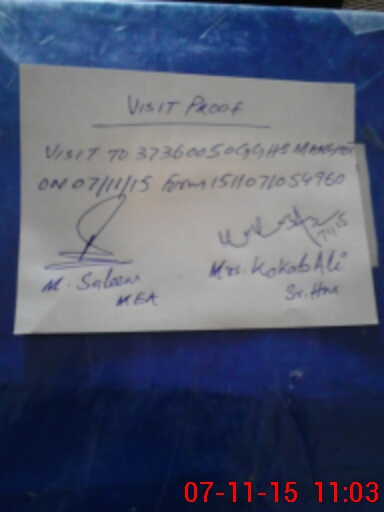 VISIT PROOF
VISIT TO 37360050 GGHS
ON 07/11/15 Form 1511071054960
7/11/15
M. Saleem
MEA
Mrs. Kokab Ali
Sr. Hm
07-11-15 11:03